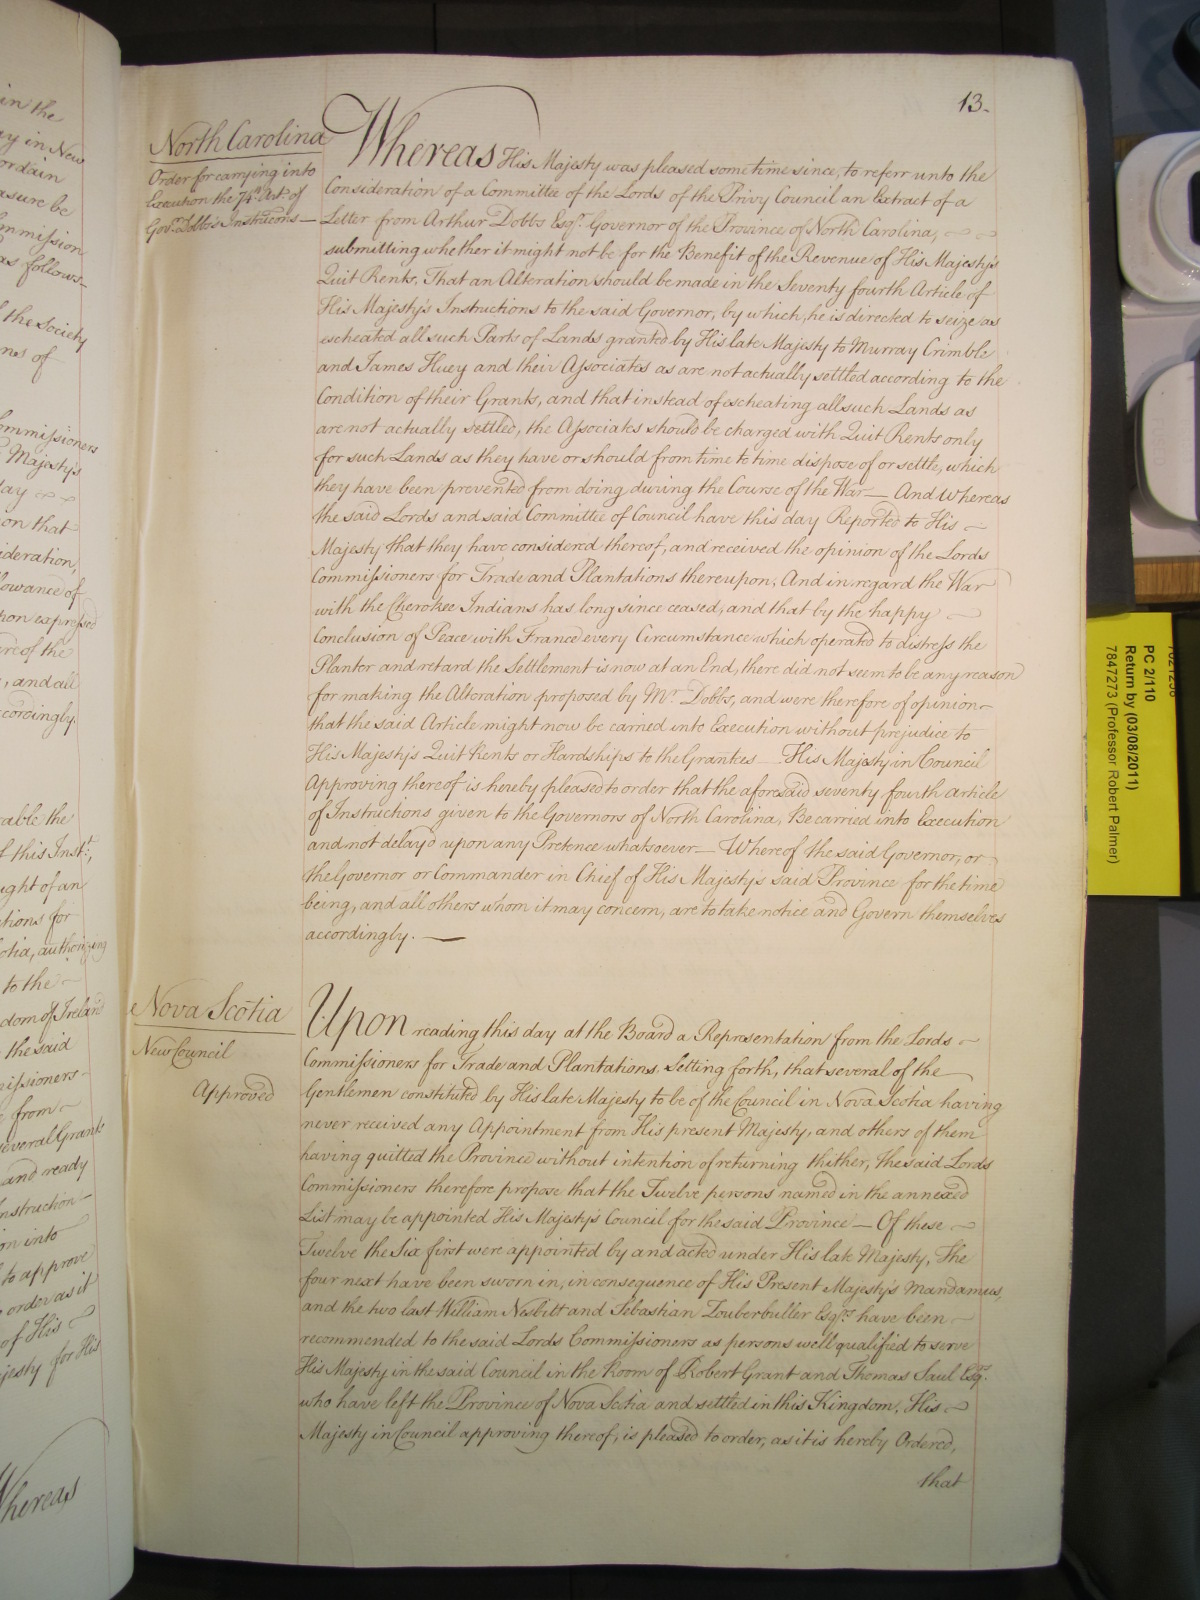 13.
North Carolina
Order for carrying into
Execution the 74th Art. of
Govr. Dobbs's Instructions —
Whereas His Majesty was pleased some time since, to referr unto the
Consideration of a Committee of the Lords of the Privy Council an Extract of a
Letter from Arthur Dobbs Esqr. Governor of the Province of North Carolina,
submitting whether it might not be for the Benefit of the Revenue of His Majesty's
Quit Rents, That an Alteration should be made in the Seventy fourth Article of
His Majesty's Instructions to the said Governor, by which, he is directed to seize as
escheated all such Parts of Lands granted by His late Majesty to Murray Crimble
and James Huey and their Associates as are not actually settled according to the
Condition of their Grants, and that instead of escheating all such Lands as
are not actually settled, the Associates should be charged with Quit Rents only
for such Lands as they have or should from time to time dispose of or settle, which
they have been prevented from doing during the Course of the War — And Whereas
the said Lords and said Committee of Council have this day Reported to His —
Majesty that they have considered thereof, and received the opinion of the Lords
Commissioners for Trade and Plantations thereupon, And in regard the War
with the Cherokee Indians has long since ceased, and that by the happy —
Conclusion of Peace with France every Circumstance which operated to distress the
Planter and retard the Settlement is now at an End, there did not seem to be any reason
for making the Alteration proposed by Mr. Dobbs, and were therefore of opinion —
that the said Article might now be carried into Execution without prejudice to
His Majesty's Quit Rents or Hardships to the Grantees — His Majesty in Council
Approving thereof is hereby pleased to order that the aforesaid seventy fourth Article
of Instructions given to the Governors of North Carolina, Be carried into Execution
and not delay'd upon any Pretence whatsoever — Whereof the said Governor, or
the Governor or Commander in Chief of His Majesty's said Province for the time
being, and all others whom it may concern, are to take notice and Govern themselves
accordingly. —
Nova Scotia
New Council
Approved
Upon reading this day at the Board a Representation from the Lords —
Commissioners for Trade and Plantations, Setting forth, that several of the —
Gentlemen constituted by His late Majesty to be of the Council in Nova Scotia having
never received any Appointment from His present Majesty, and others of them
having quitted the Province without intention of returning thither, the said Lords
Commissioners therefore propose that the Twelve persons named in the annexed
List may be appointed His Majesty's Council for the said Province — Of these —
Twelve the Six first were appointed by and acted under His late Majesty, The
four next have been sworn in, in consequence of His Present Majesty's Mandamus,
and the two last William Nesbitt and Sebastian Zouberbuller Esqrs. have been —
recommended to the said Lords Commissioners as persons well qualified to serve
His Majesty in the said Council in the Room of Robert Grant and Thomas Saul Esqrs.
who have left the Province of Nova Scotia and settled in this Kingdom, His —
Majesty in Council approving thereof, is pleased to order, as it is hereby Ordered,
that
PC 2/110
Return by (03/08/2011)
7847273 (Professor Robert Palmer)